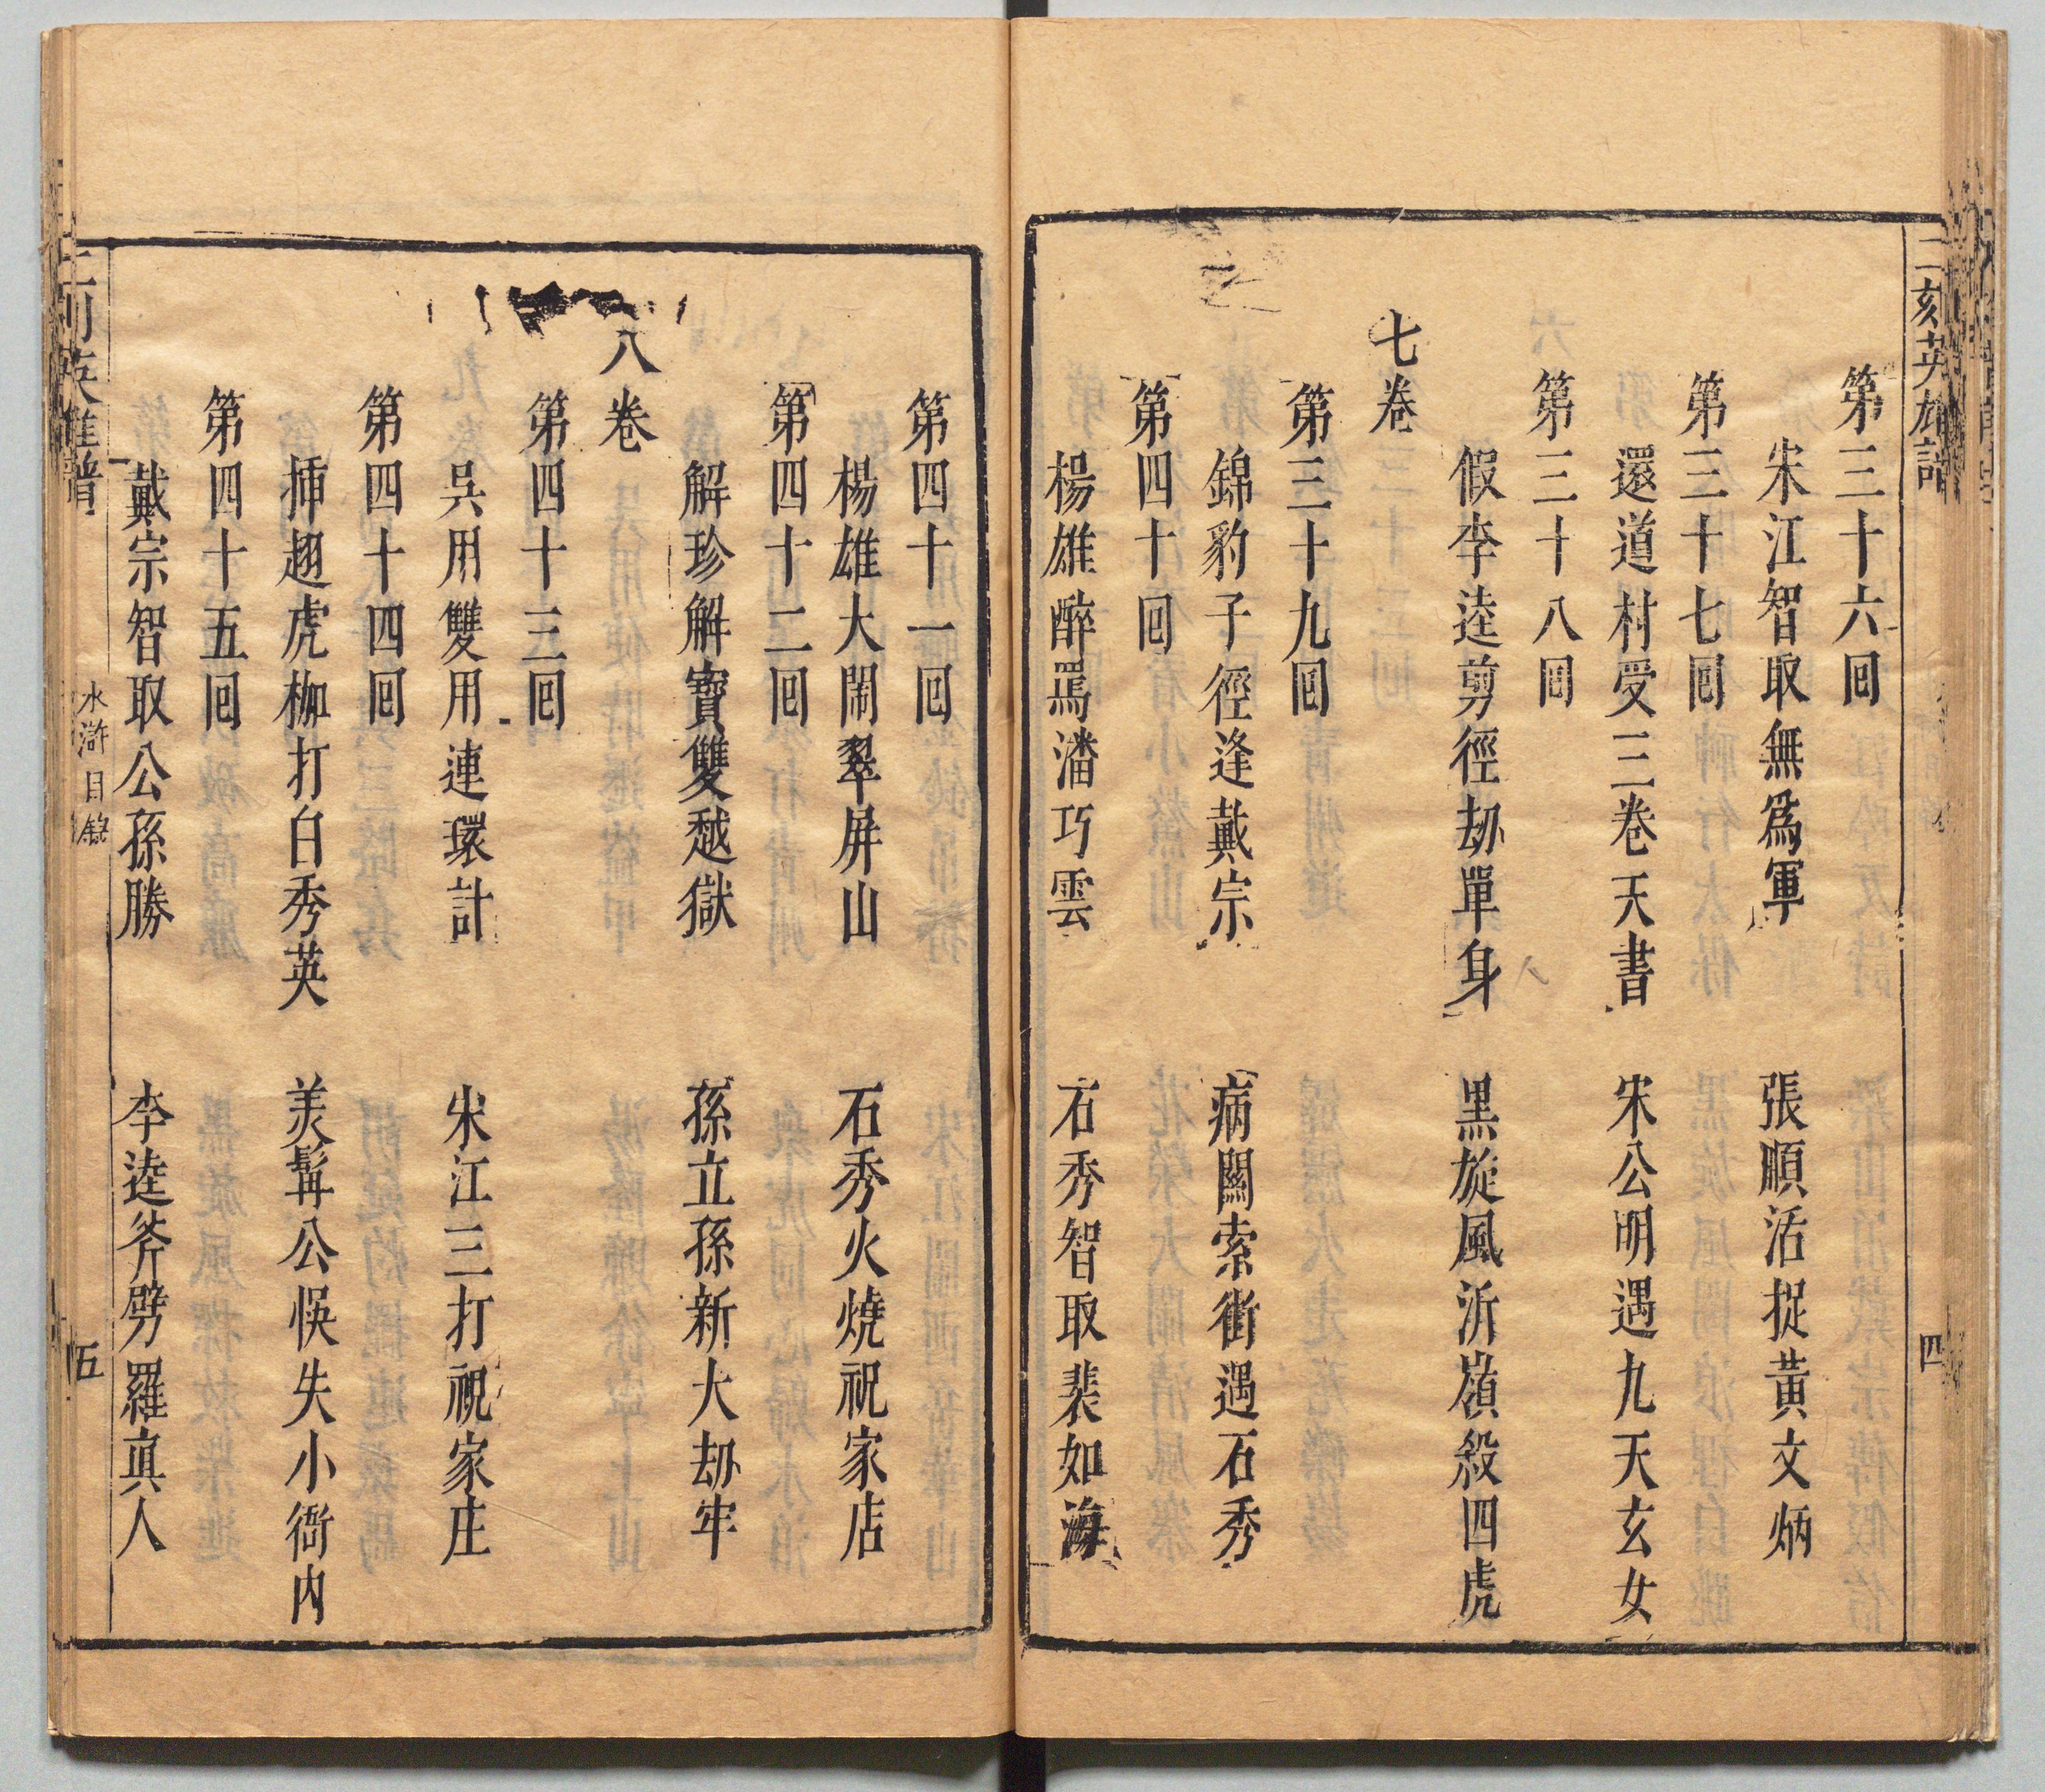 二刻英雄譜
四
第三十六囘
宋江智取無爲軍　張順活捉黃文炳
第三十七囘
還道村受三卷天書　宋公明遇九天玄女
第三十八囘
假李逵剪徑劫單身　黑旋風沂嶺殺四虎
七卷
第三十九囘
錦豹子徑逢戴宗　病關索街遇石秀
第四十囘
楊雄醉罵潘巧雲　石秀智取裴如海
第四十一囘
楊雄大鬧翠屏山　石秀火燒祝家店
第四十二囘
解珍解寶雙越獄　孫立孫新大劫牢
八卷
第四十三囘
吳用雙用連環計　宋江三打祝家庄
第四十四囘
揷翅虎枷打白秀英　美髯公悞失小衙內
第四十五囘
戴宗智取公孫勝　李逵斧劈羅眞人
二刻英雄譜
水滸目錄
五